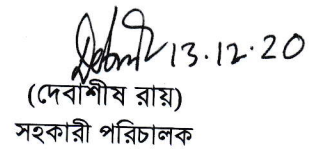 13.12.20
(দেবাশীষ রায়)
সহকারী পরিচালক